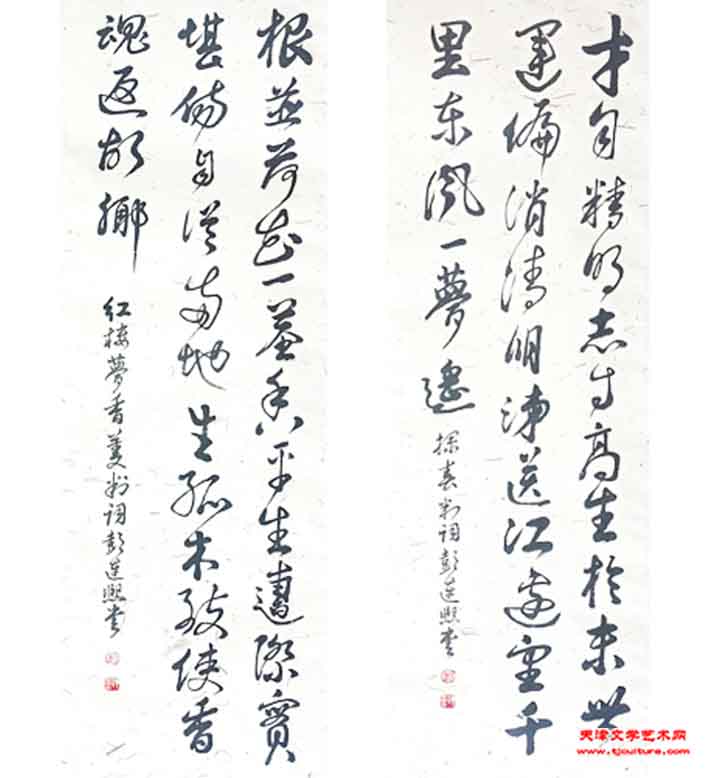 才自精明志自高生於末世
運偏消清明涕送江邊望千
里東風一夢遙
探春判词彭连熙书
根並荷花一莖香平生遭際實
堪傷自從兩地生孤木致使香
魂返故鄉
红楼夢香菱判词彭连熙书
天津文学艺术网
www.tjculture.com